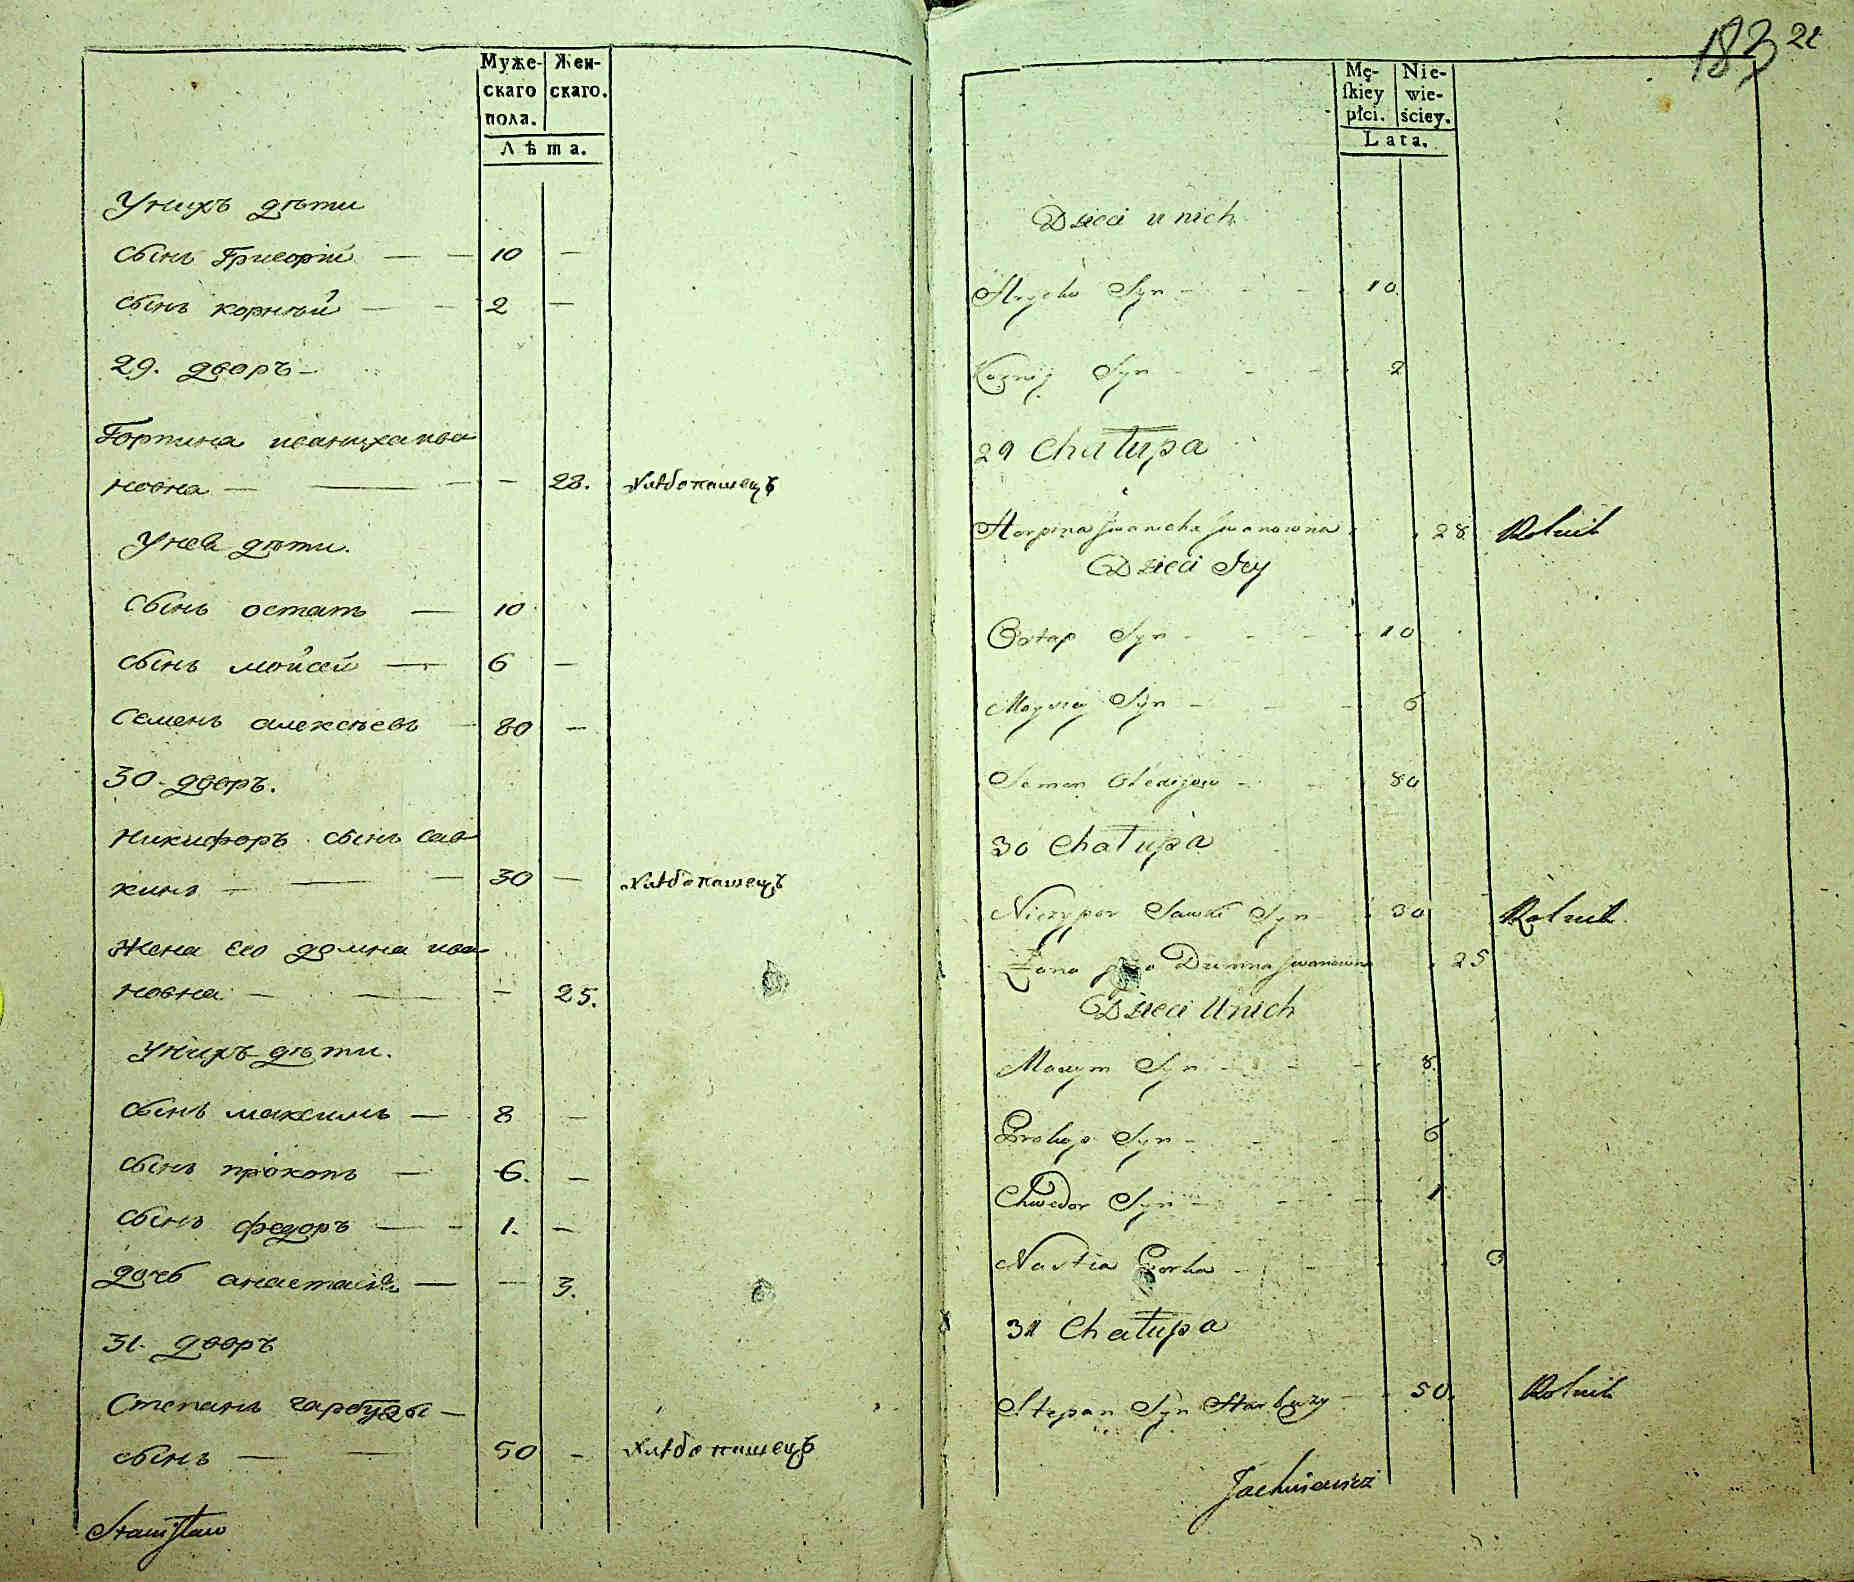 Муже-
скаго
пола.
Жен-
скаго.
Лѣта.
Унихъ дѣти
сынъ Григорій — — 10 —
сынъ корнѣй — — 2 —
29. дворъ —
Горпина иваниха ива
новна — — — — 28. хлѣбопашецъ
Унеи дѣти.
сынъ остапъ — 10
сынъ мойсей — 6 —
Семенъ алексѣевъ — 80 —
30 дворъ.
Никифоръ сынъ сав
кинъ — — — 30 — хлѣбопашецъ
Жена Его домна ива
новна — — — — 25.
Унихъ дѣти.
сынъ максимъ — 8 —
сынъ прокопъ — 6. —
сынъ федоръ — — 1. —
дочь анастасия — — 3.
31. дворъ
Степанъ гарбузы —
сынъ — — 50 — хлѣбопашецъ
Stanisław
183 21
Mę-
ſkiey
płci.
Nie-
wie-
ściey.
Lata.
Dzieci u nich
Hryćko Syn — — — 10
Korniy Syn — — — 2
29 Chałupa
Horpina Jwanicha Jwanowna 28 Rolnik
Dzieci Jey
Ostap Syn — — — 10
Moysiey Syn — — — 6
Semen Olexijow — — 80
30 Chałupa
Niczypor Sawki Syn — 30 Rolnik
Żona jego Dumna Jwanowna 25
Dzieci U nich
Maxym Syn — — — 8.
Prokop Syn — — — 6
Chwedor Syn — — — 1
Nastia Corka — — 3
31 Chałupa
Stepan Syn Harbuzy — 50. Rolnik
Jachimowicz